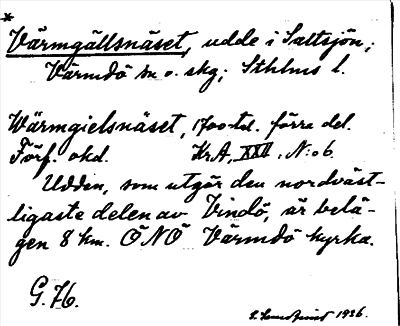 *
Värmgällsnäset, udde i Saltsjön;
Värmdö sn o. skg; Sthlms l.
Wärmgielsnäset, 1700-td. förra del.
Förf. okd. KrA, XXII, N:o 6.
Udden, som utgör den nordväst-
ligaste delen av Vindö, är belä-
gen 8 km. ÖNÖ Värmdö kyrka.
G. 76.
1936